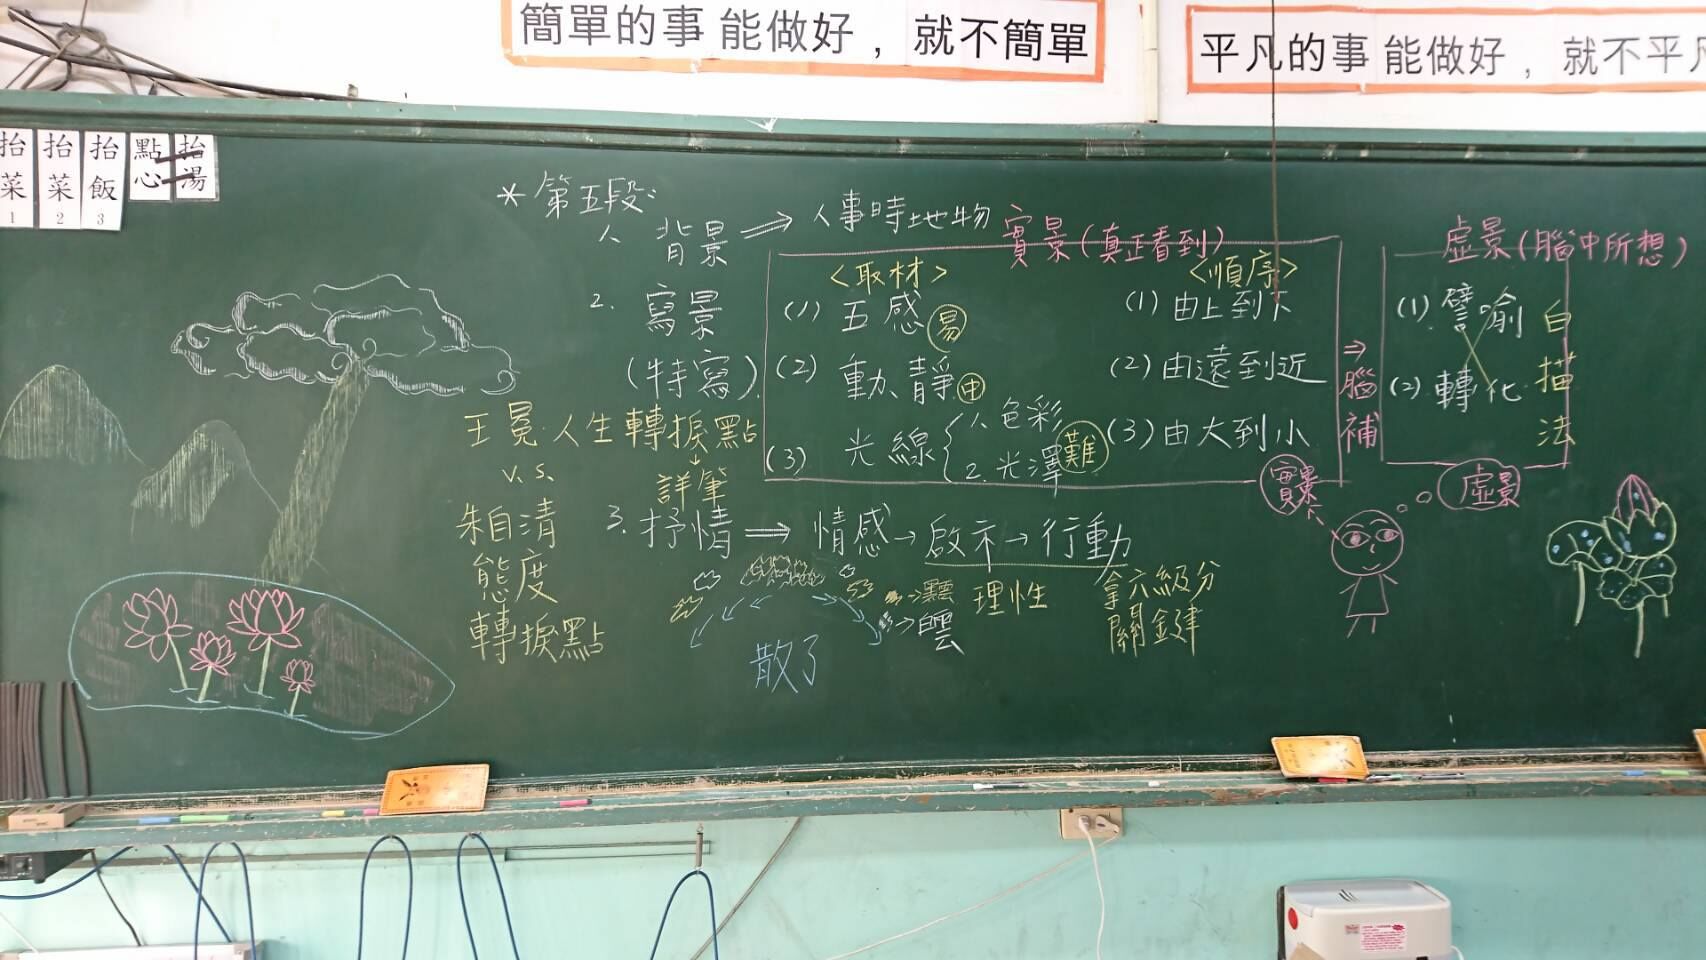 簡單的事 能做好，就不簡單
平凡的事 能做好，就不平凡
抬菜1
抬菜2
抬飯3
點心
抬湯
＊第五段：
1、背景⇒人事時地物
2、寫景
(特寫)
實景(真正看到)
<取材>
(1) 五感 易
(2) 動、靜 中
(3) 光線
1、色彩
2、光澤
難
<順序>
(1) 由上到下
(2) 由遠到近
(3) 由大到小
⇒腦補
虛景(腦中所想)
(1) 譬喻
(2) 轉化
白描法
實景
虛景
王冕 人生轉捩點
↓
詳筆
v.s.
朱自清
態度
轉捩點
3、抒情⇒情感→啟示→行動
理性
拿六級分
關鍵
→黑雲
→白雲
散了